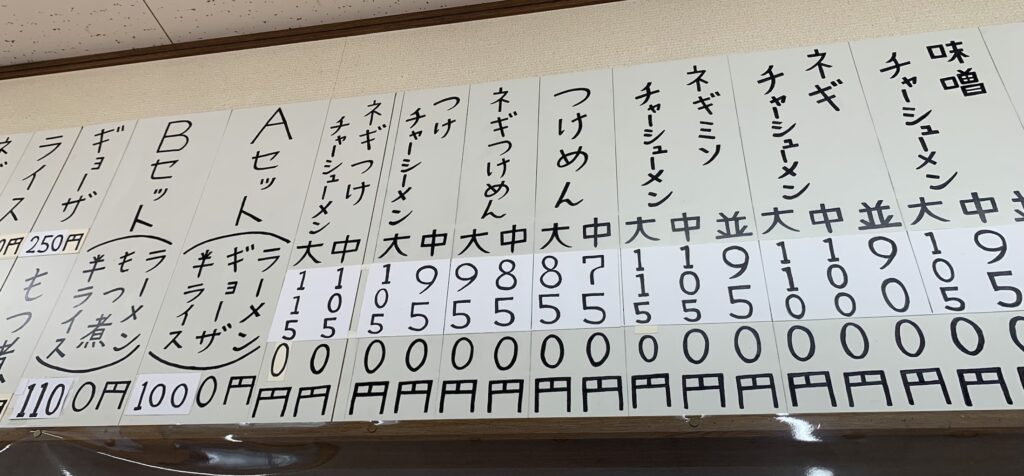 味噌
チャーシューメン
中 950円
大 1050円
ネギ
チャーシューメン
並 900円
中 1000円
大 1100円
ネギミソ
チャーシューメン
並 950円
中 1050円
大 1150円
つけめん
中 750円
大 850円
ネギつけめん
中 850円
大 950円
つけ
チャーシーメン
中 950円
大 1050円
ネギつけ
チャーシューメン
中 1050円
大 1150円
Aセット
(ラーメン
ギョーザ
半ライス)
1000円
Bセット
(ラーメン
もつ煮
半ライス)
1100円
ギョーザ
250円
ライス
0円
もつ煮